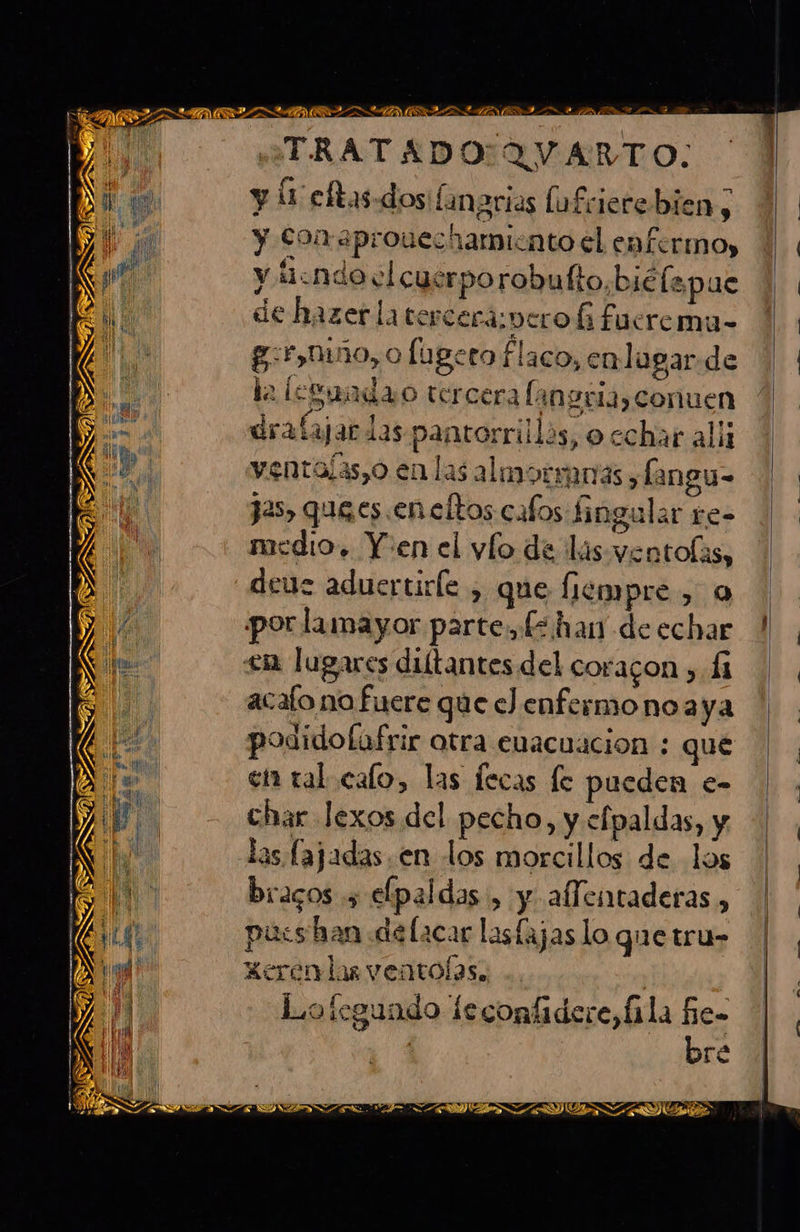 TRATADO QVARTO.
y ſi eſtas dos ſangrias ſufriere bien,
y con aprouechamiento el enfermo,
y ſiendo el cuerpo robuſto, biē ſe pue
de hazer la tercera: pero ſi fuere mu-
ger, niño, o ſugeto flaco, en lugar de
la ſegunda o tercera ſangria, conuen
dra ſajar las pantorrillas, o echar alli
ventoſas, o en las almorranas, ſangu-
jas, que es en eſtos caſos ſingular re-
medio. Y en el vſo de las ventoſas,
deue aduertirſe, que ſiempre, o
por la mayor parte, ſe han de echar
en lugares diſtantes del coraçon, ſi
acaſo no fuere que el enfermo no aya
podido ſufrir otra euacuacion: que
en tal caſo, las ſecas ſe pueden e-
char lexos del pecho, y eſpaldas, y
las ſajadas en los morcillos de los
braços, eſpaldas, y aſſentaderas,
pues han de ſacar las ſajas lo que tru-
xeren las ventoſas.
Lo ſegundo ſe conſidere, ſi la fie-
bre